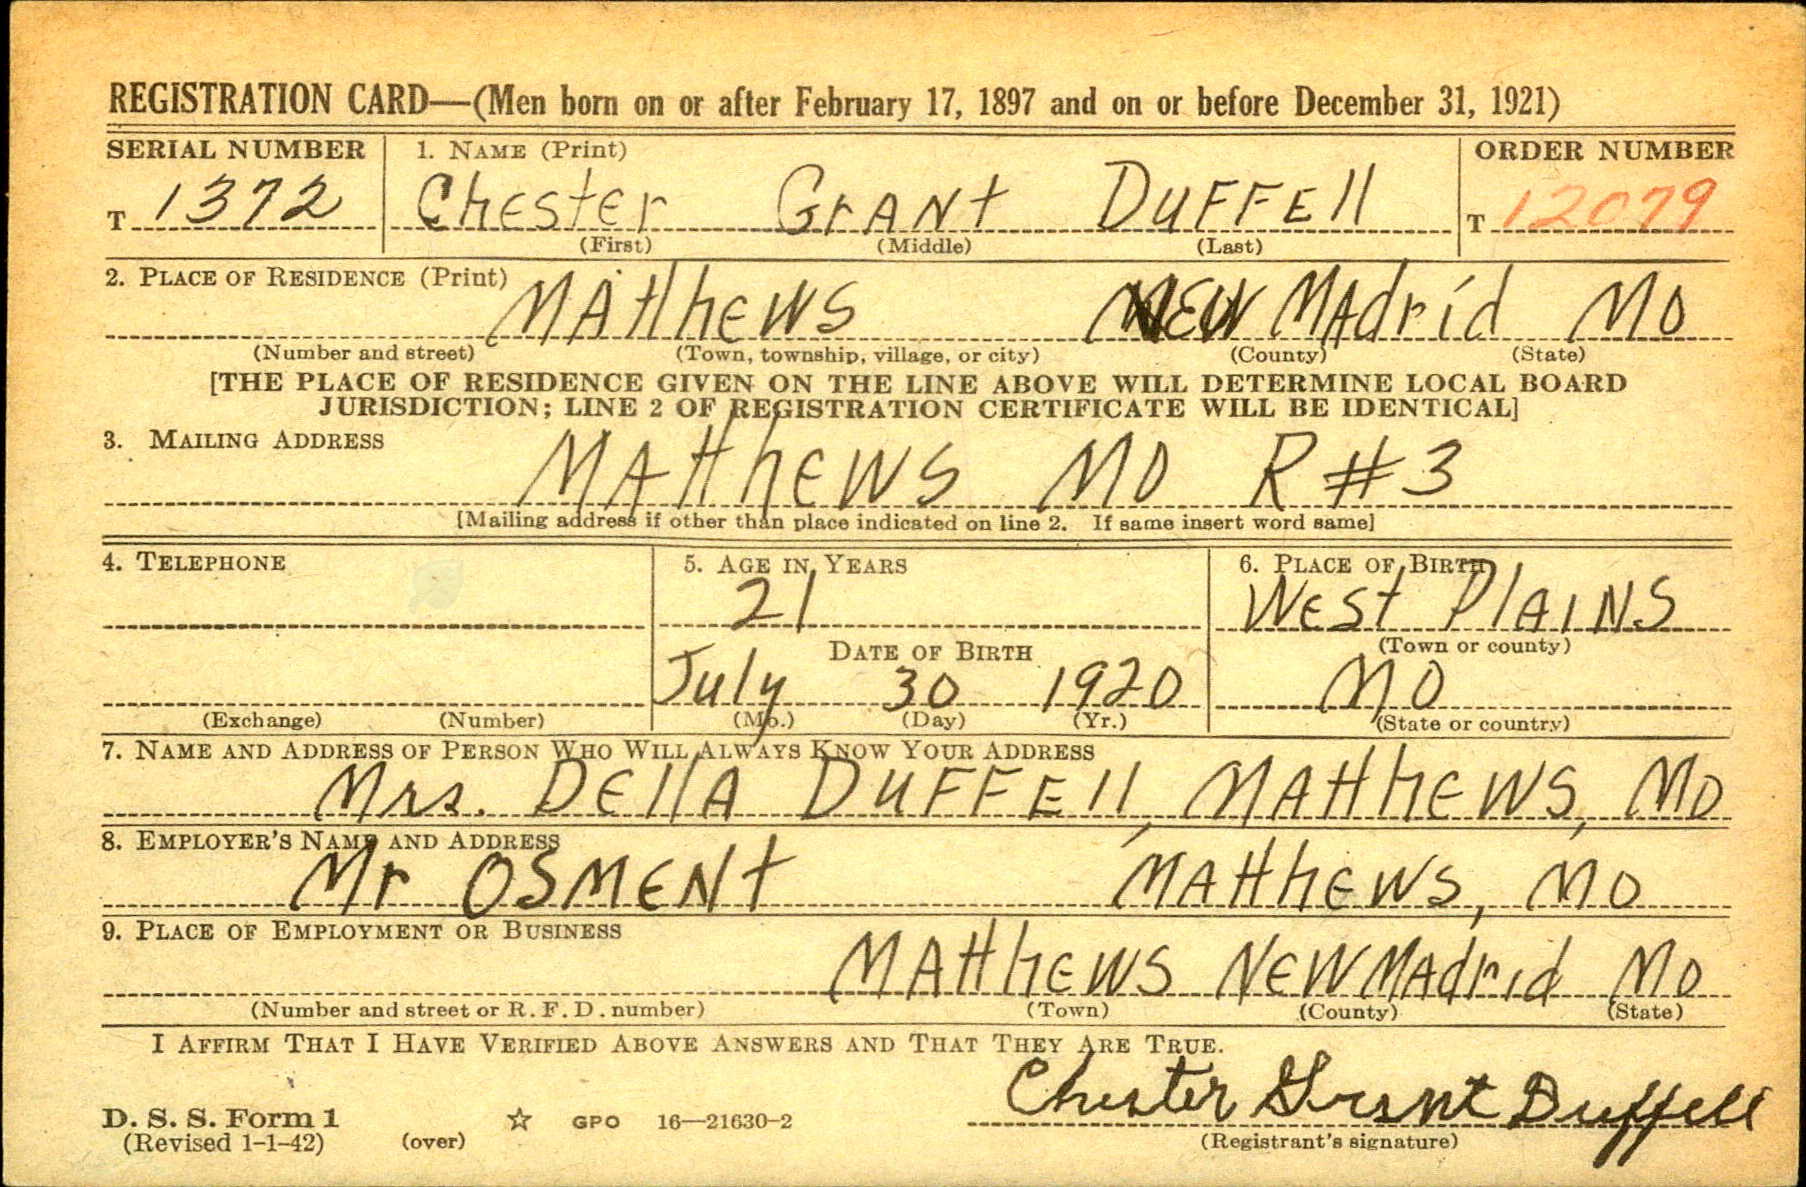 REGISTRATION CARD—(Men born on or after February 17, 1897 and on or before December 31, 1921)
SERIAL NUMBER 1. NAME (Print) ORDER NUMBER
T 1372 Chester Grant Duffell T 12079
(First) (Middle) (Last)
2. PLACE OF RESIDENCE (Print)
Matthews New Madrid Mo
(Number and street) (Town, township, village, or city) (County) (State)
[THE PLACE OF RESIDENCE GIVEN ON THE LINE ABOVE WILL DETERMINE LOCAL BOARD
JURISDICTION; LINE 2 OF REGISTRATION CERTIFICATE WILL BE IDENTICAL]
3. MAILING ADDRESS
Matthews Mo R #3
[Mailing address if other than place indicated on line 2. If same insert word same]
4. TELEPHONE 5. AGE IN YEARS 6. PLACE OF BIRTH
21 West Plains
DATE OF BIRTH (Town or county)
July 30 1920 Mo
(Exchange) (Number) (Mo.) (Day) (Yr.) (State or country)
7. NAME AND ADDRESS OF PERSON WHO WILL ALWAYS KNOW YOUR ADDRESS
Mrs. Della Duffell, Matthews, Mo
8. EMPLOYER'S NAME AND ADDRESS
Mr Osment Matthews, Mo
9. PLACE OF EMPLOYMENT OR BUSINESS
Matthews New Madrid Mo
(Number and street or R. F. D. number) (Town) (County) (State)
I AFFIRM THAT I HAVE VERIFIED ABOVE ANSWERS AND THAT THEY ARE TRUE.
Chester Grant Duffell
D. S. S. Form 1
(Revised 1-1-42) (over) ☆ GPO 16—21630-2 (Registrant's signature)